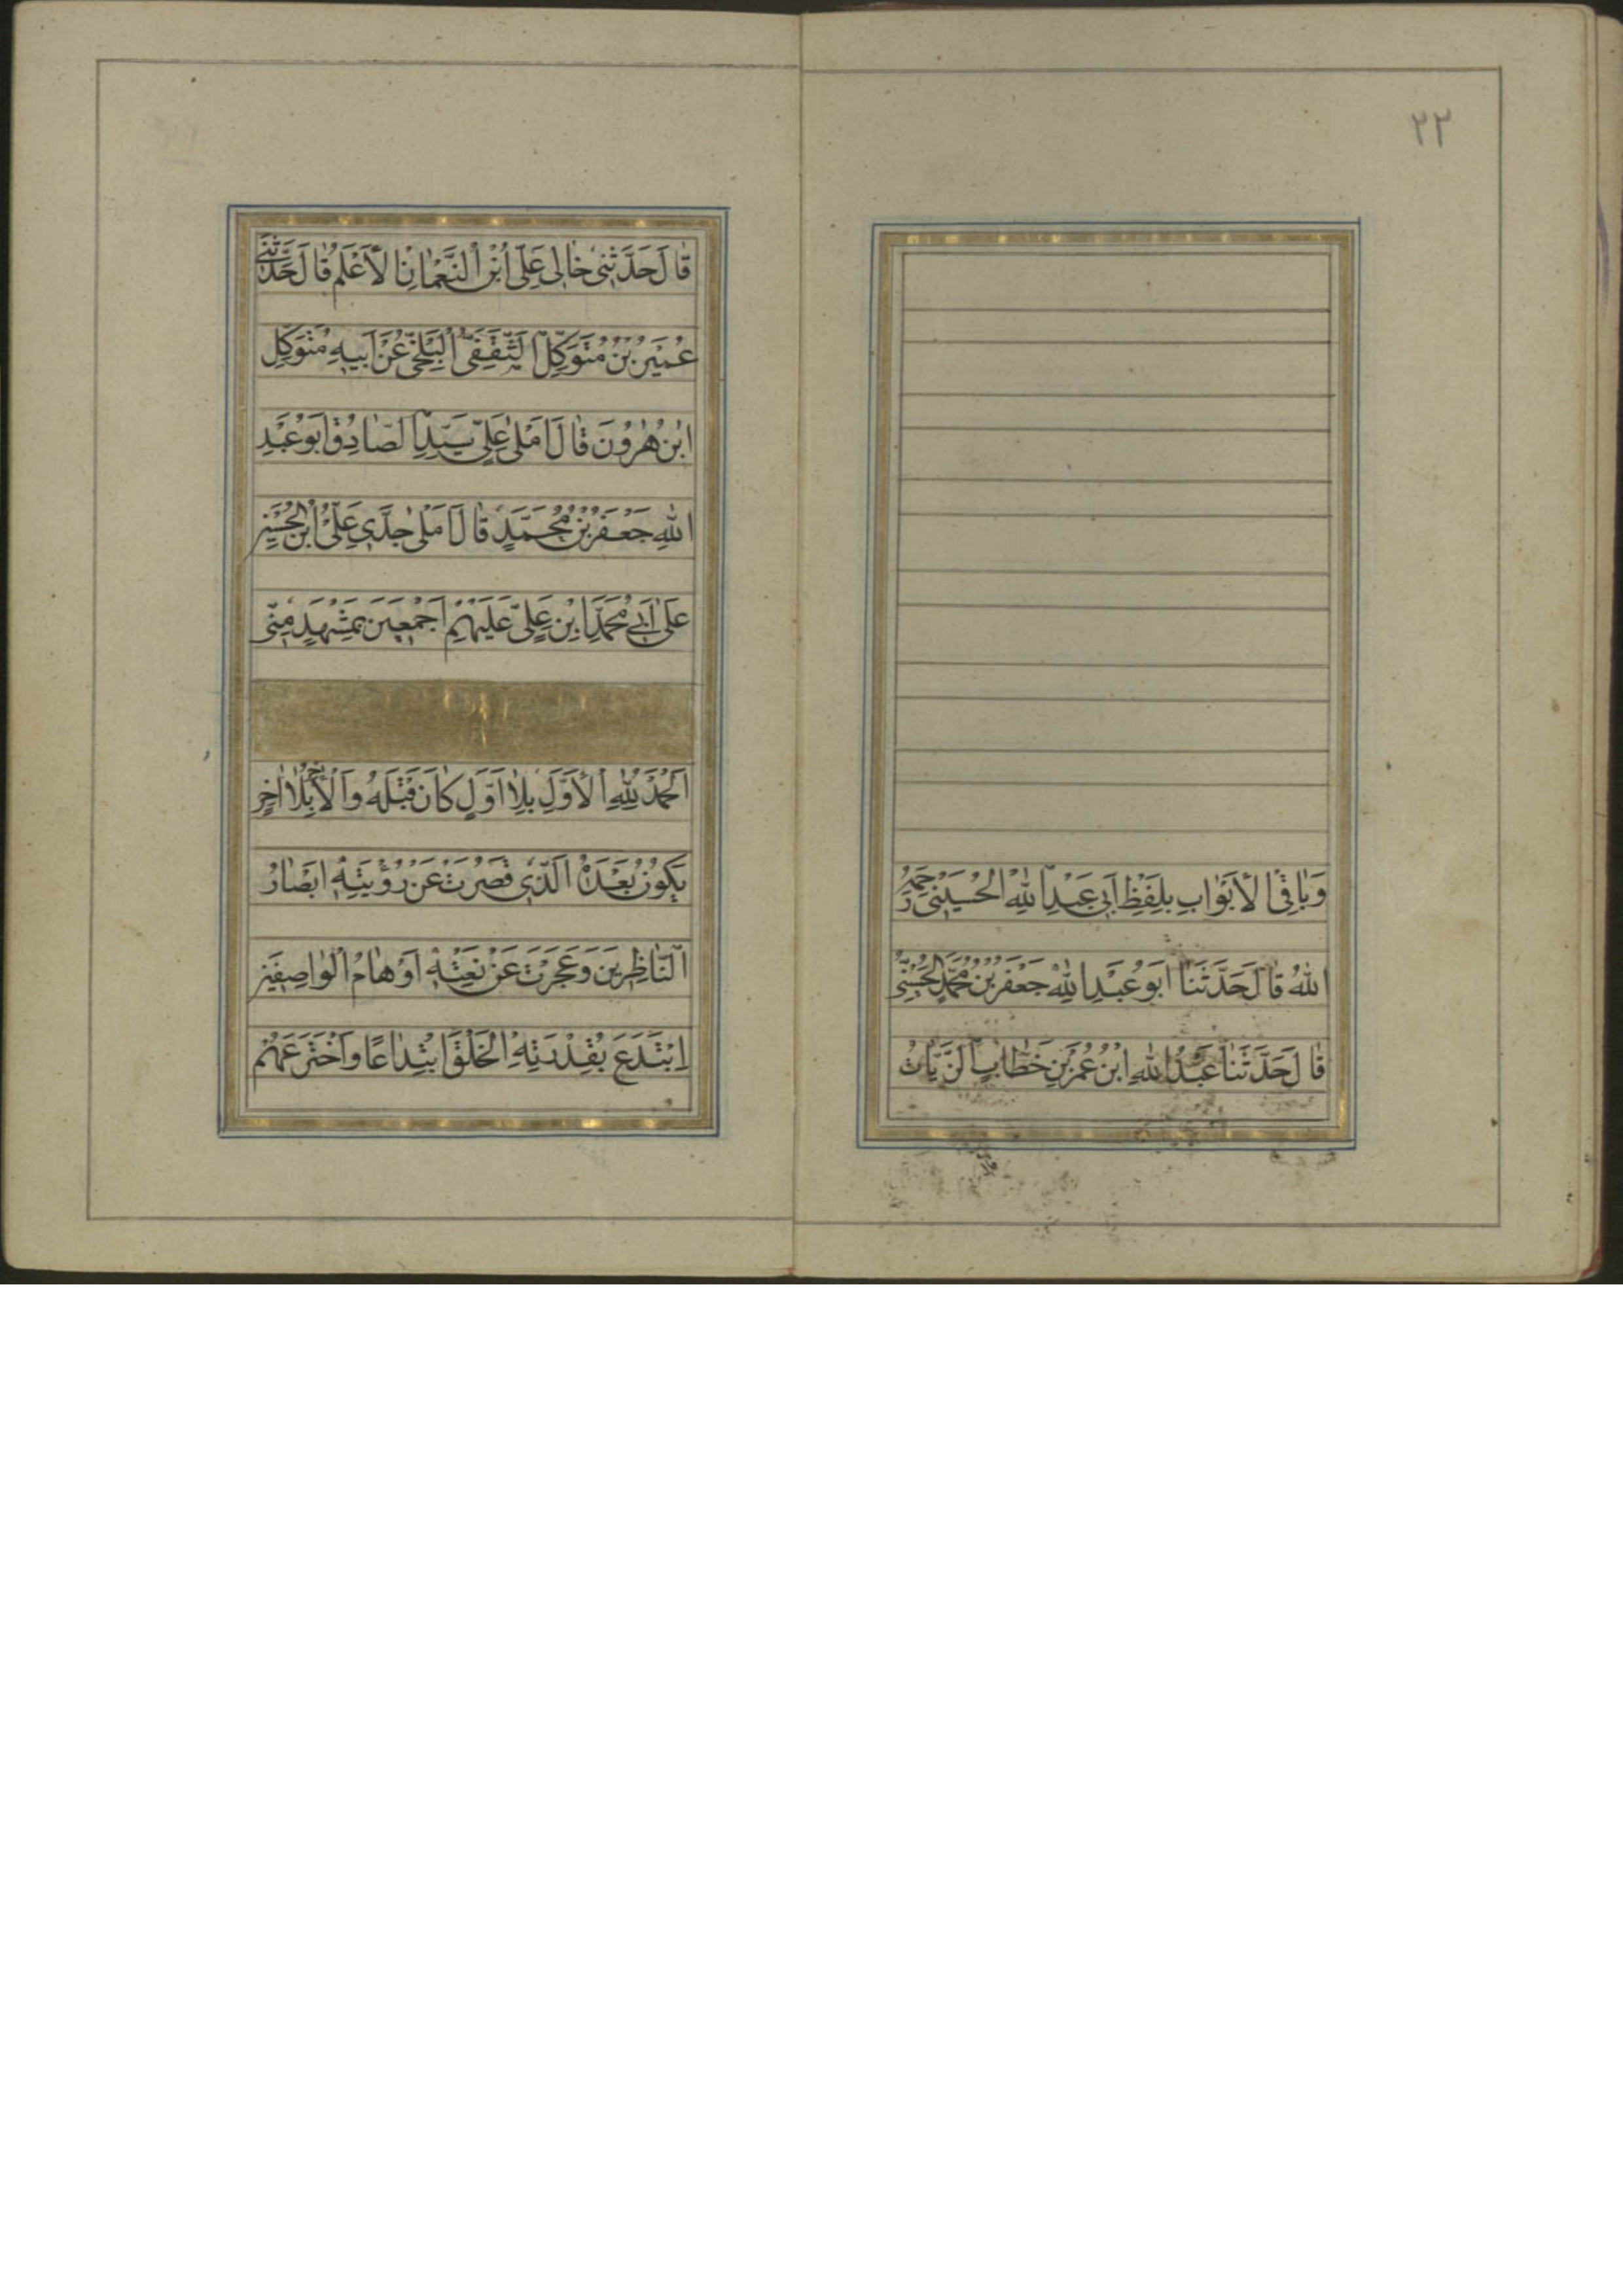 ٢٣
وَبٰاقِى الْأَبْوٰابِ بِلَفْظِ أَبى عَبْدِ اللهِ الْحُسَيْنى رَحِمَهُ
اللهُ قٰالَ حَدَّثَنٰا اَبُو عَبْدِ اللهِ جَعْفَرُ بْنُ مُحَمَّدٍ الْحَسَنِىُّ
قٰالَ حَدَّثَنٰا عَبْدُ اللهِ ابْنُ عُمَرَ بْنِ خَطّٰابٍ الزَّيّٰاتُ
قٰالَ حَدَّثَنى خٰالى عَلِىُّ ابْنُ النُّعْمٰانِ الْأَعْلَمُ قٰالَ حَدَّثَنى
عُمَيْرُ بْنُ مُتَوَكِّلٍ الثَّقَفِىُّ الْبَلْخِىُّ عَنْ اَبيهِ مُتَوَكِّلِ
ابْنِ هٰرُونَ قٰالَ اَمْلىٰ عَلَىَّ سَيِّدِى الصّٰادِقُ اَبُو عَبْدِ
اللهِ جَعْفَرُ بْنُ مُحَمَّدٍ قٰالَ اَمْلىٰ جَدّى عَلِىُّ ابْنُ الْحُسَيْنِ
عَلىٰ اَبى مُحَمَّدِ ابْنِ عَلِىٍّ عَلَيْهِمْ اَجْمَعينَ بِمَشْهَدٍ مِنّى
اَلْحَمْدُ لِلّٰهِ الْأَوَّلِ بِلٰا اَوَّلٍ كٰانَ قَبْلَهُ وَالْأٰخِرِ بِلٰا اٰخِرٍ
يَكُونُ بَعْدَهُ الَّذى قَصُرَتْ عَنْ رُؤْيَتِهِ اَبْصٰارُ
النّٰاظِرينَ وَعَجَزَتْ عَنْ نَعْتِهِ اَوْهٰامُ الْوٰاصِفينَ
اِبْتَدَعَ بِقُدْرَتِهِ الْخَلْقَ ابْتِدٰاعًا وَاخْتَرَعَهُمْ